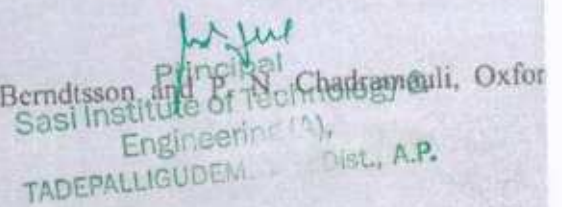 Principal
Berndtsson and P. N. Chadramouli, Oxfor
Sasi Institute of Technology &
Engineering (A),
TADEPALLIGUDEM. Dist., A.P.